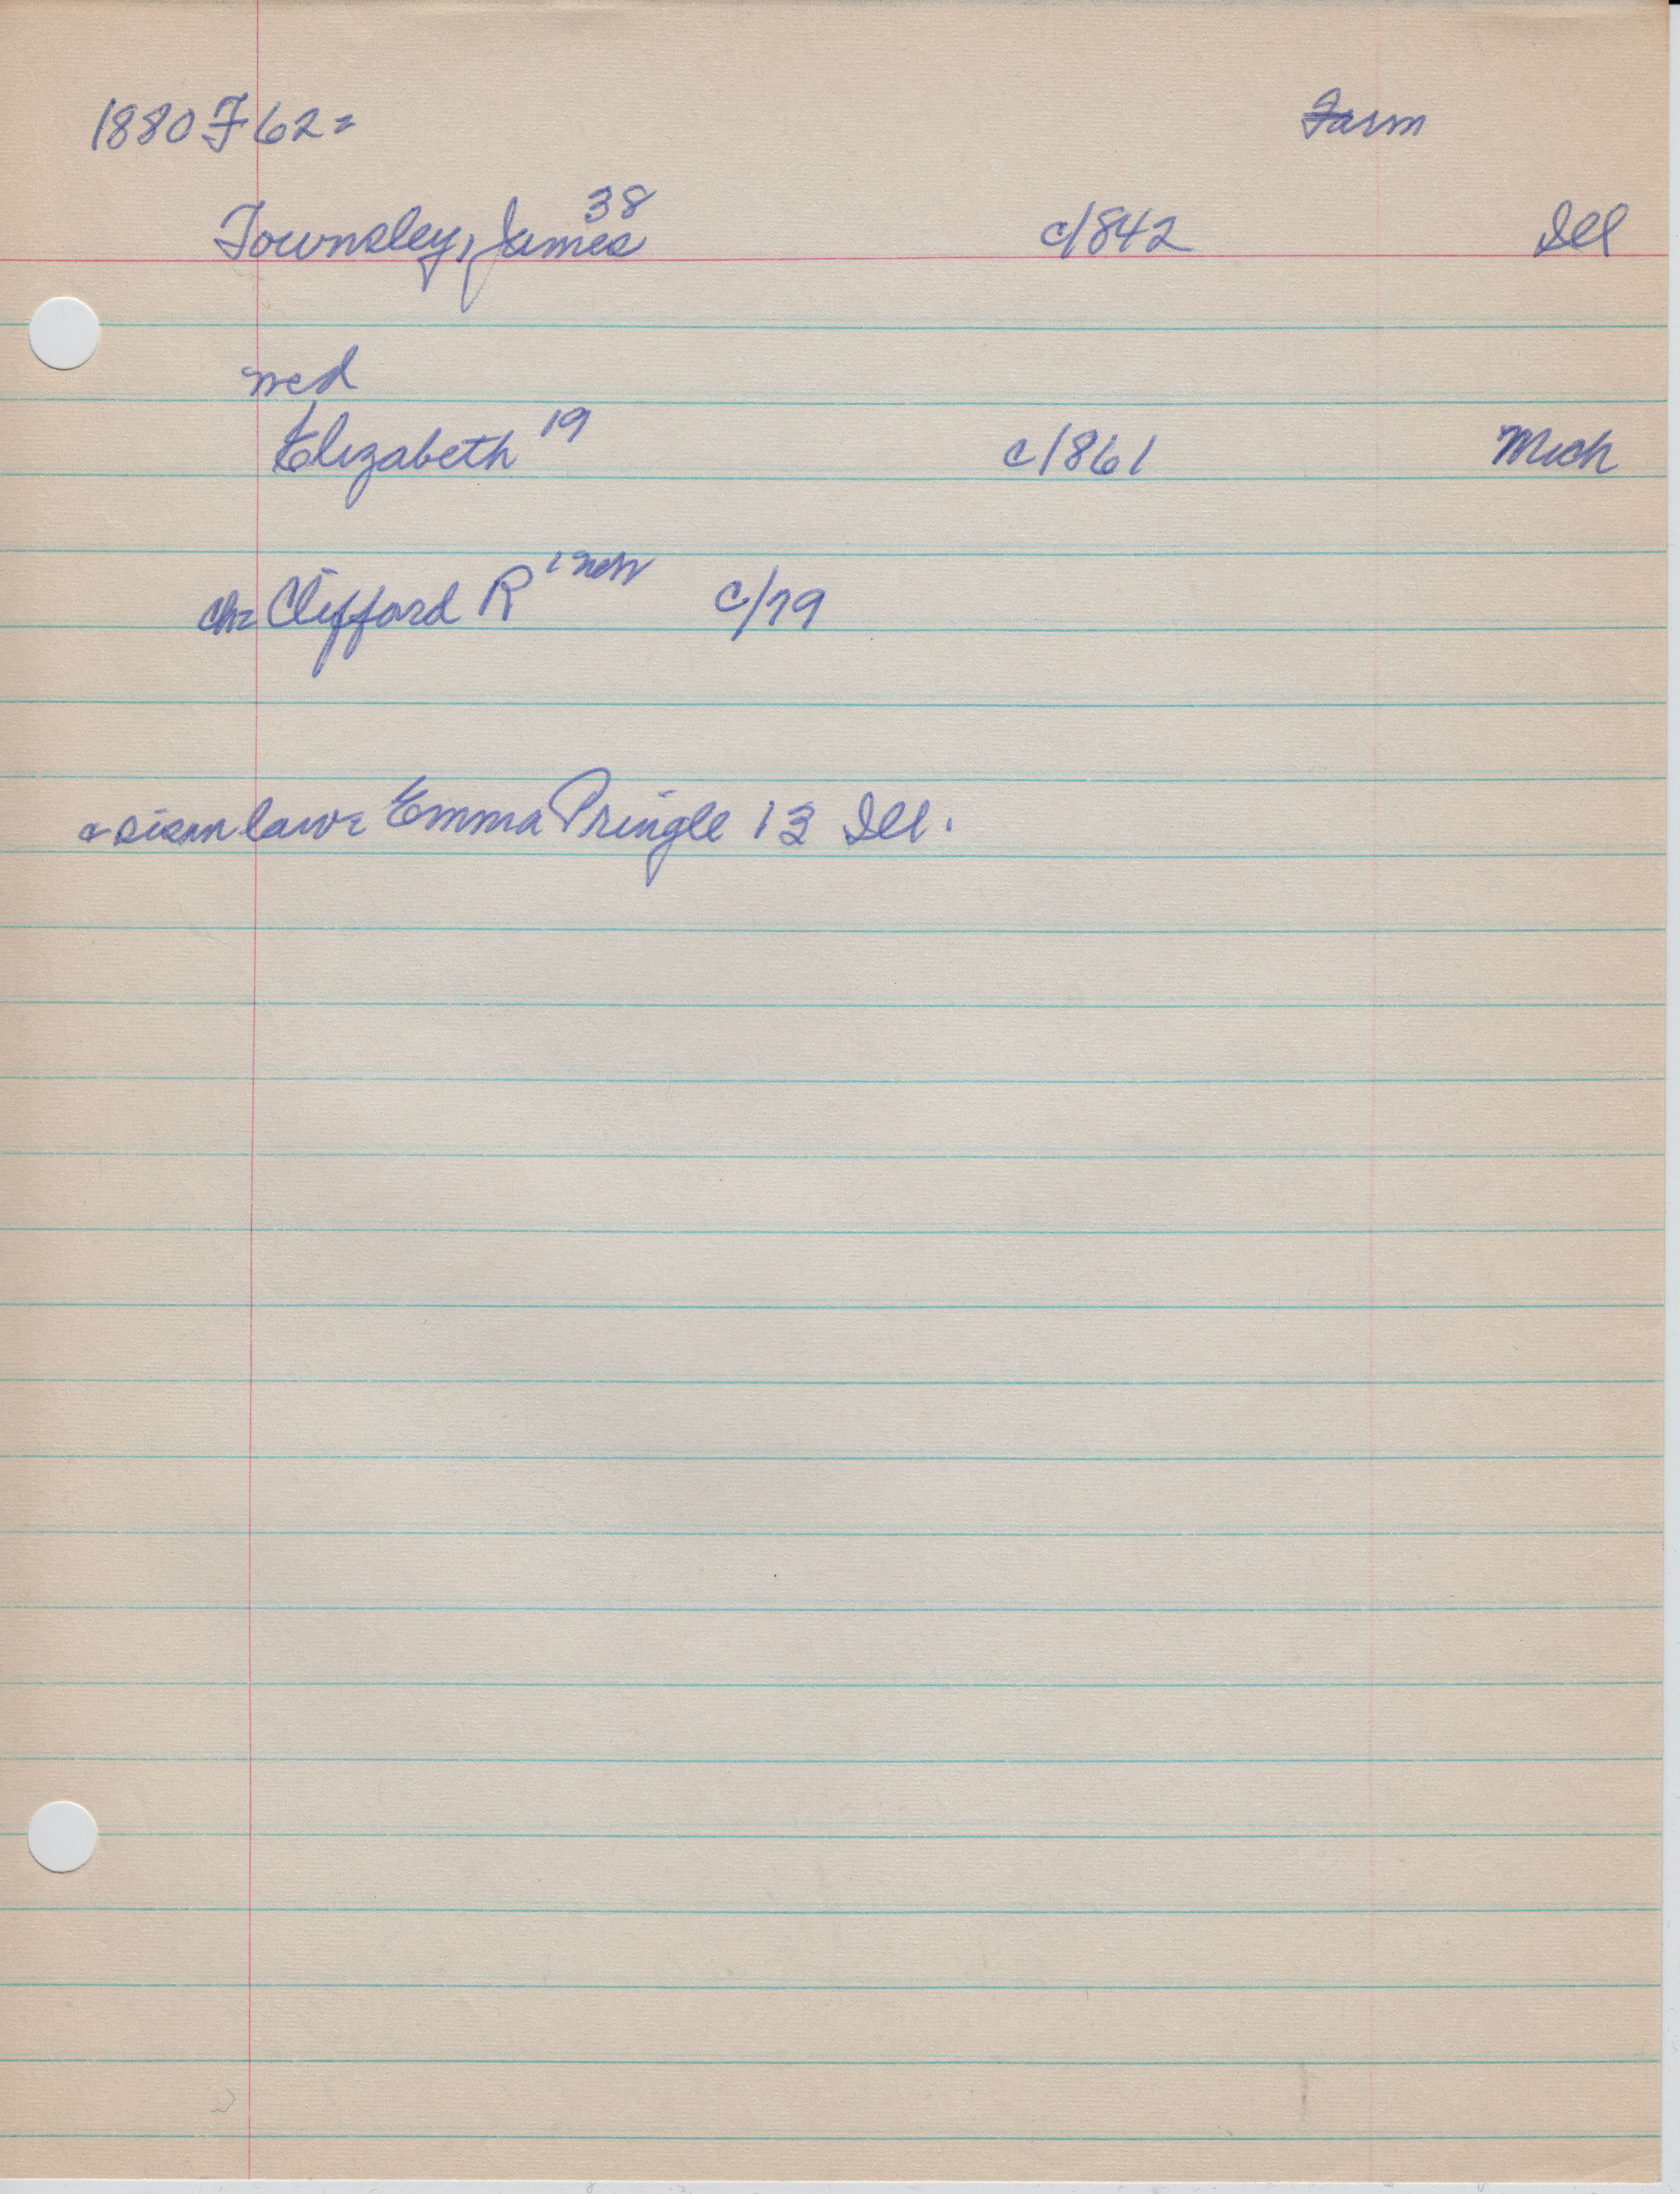 1880 F 62= Farm
Townsley, James 38 c/842 Ill
med
Elizabeth 19 c/861 Mich
ch= Clifford R c/79
sisnn law= Emma Pringle 13 Ill.